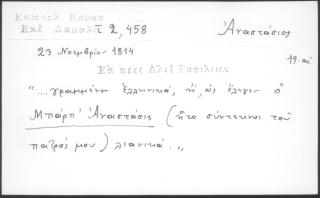 Επιστολ Κοραη
Εκδ Δαμαλᾶ τ 2, 458
Ἀναστάσιος
23 Νοεμβρίου 1814
19. αἰ.
Ἐπ πρὸς Ἀλεξ Βασιλειου
"... γραμμένον ἑλληνικά, ἤ, ὡς ἔλεγεν ὁ
Μπάρπ' Ἀναστάσις (ἦτο σύντεκνος τοῦ
πατρός μου) λιανικά.,,